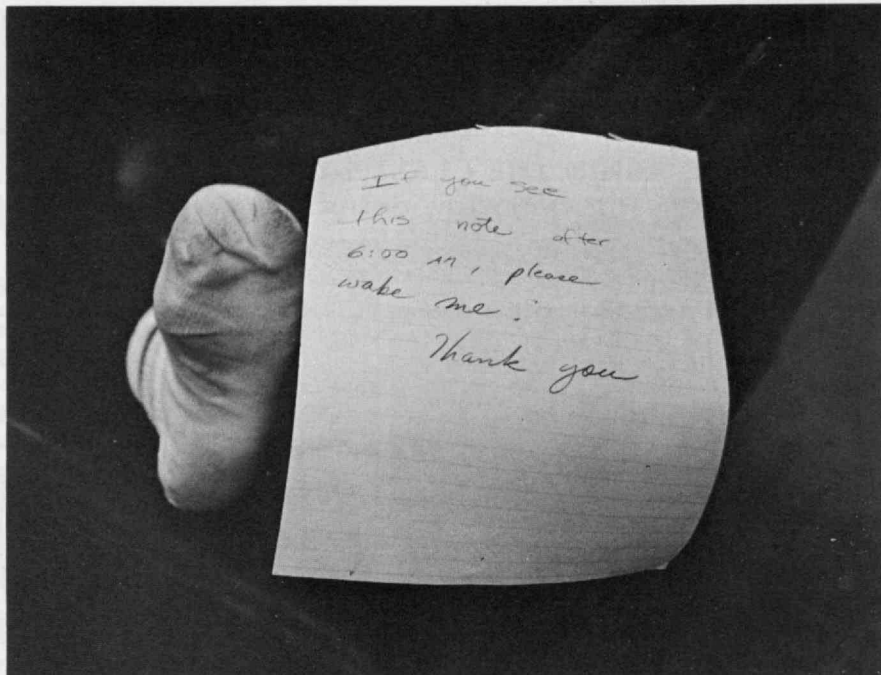 If you see
this note after
6:00 AM, please
wake me.
Thank you